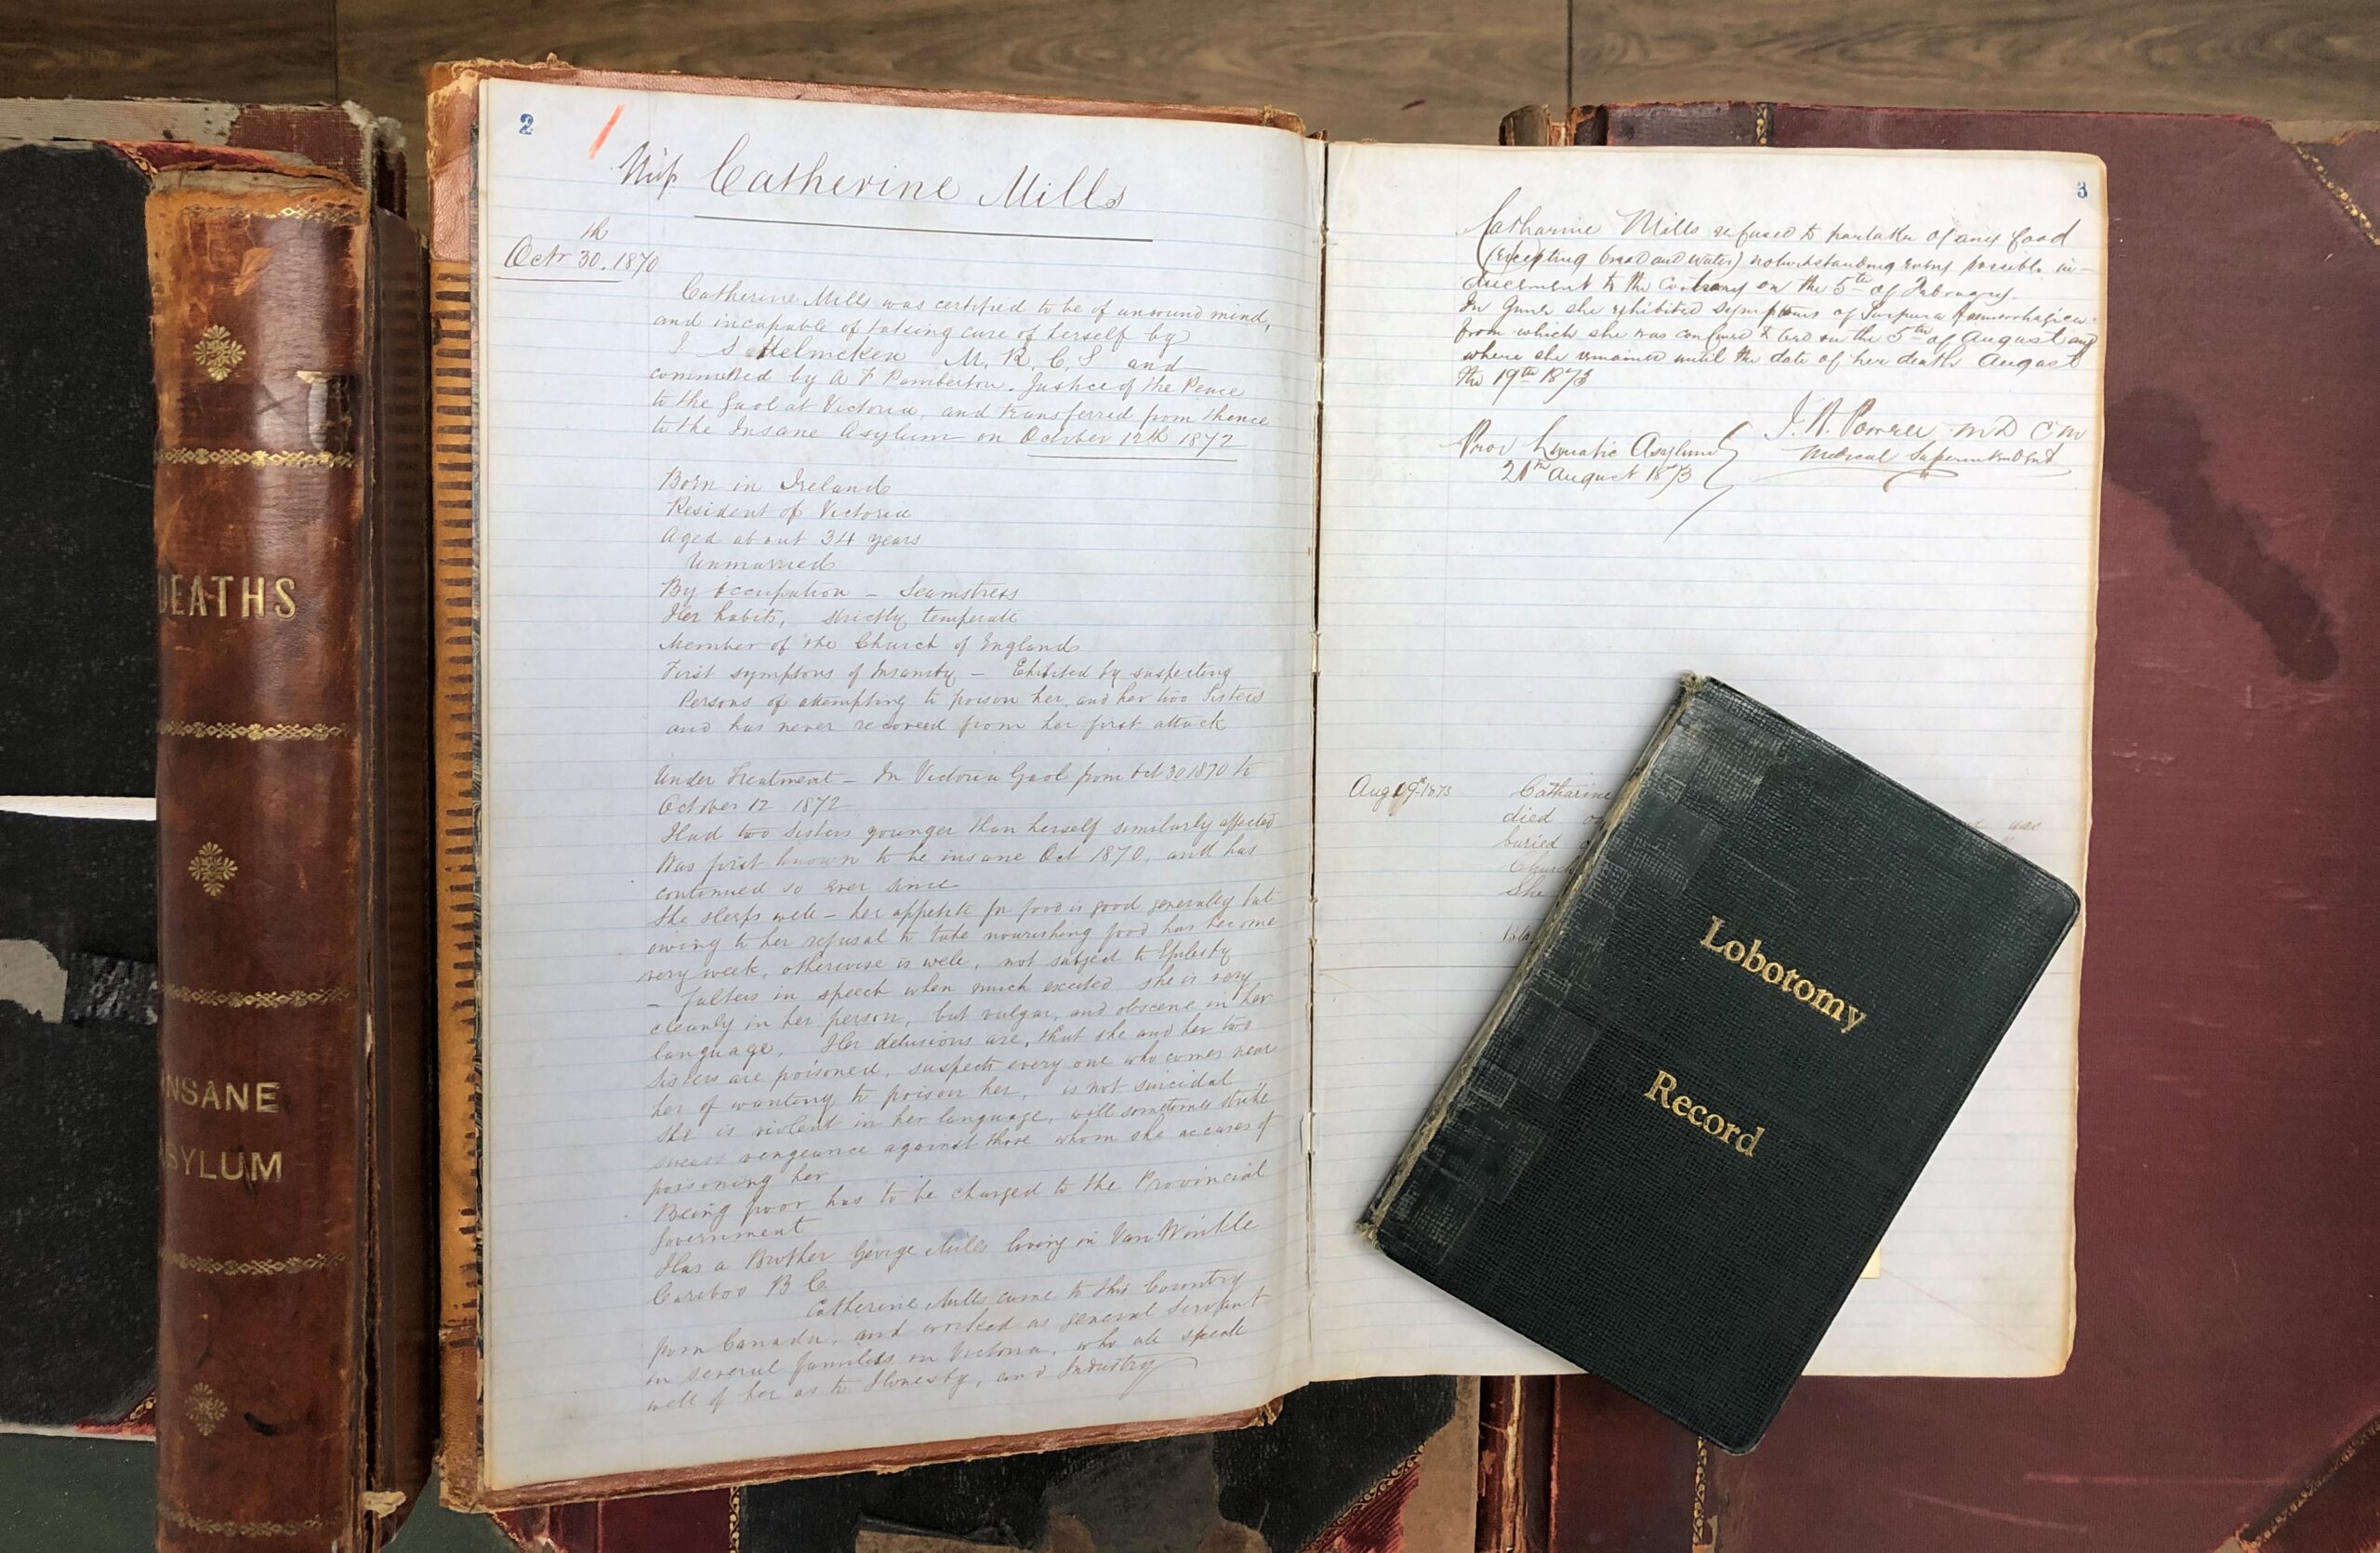 DEATHS
INSANE
ASYLUM
2
Miss Catherine Mills
th
Octr 30. 1870
Catherine Mills was certified to be of unsound mind,
and incapable of taking care of herself by
I S Helmcken M. R. C. S and
committed by A F Pemberton. Justice of the Peace
to the Gaol at Victoria, and transferred from thence
to the Insane Asylum on October 12th 1872
Born in Ireland
Resident of Victoria
Aged about 34 years
Unmarried
By occupation – Seamstress
Her habits, strictly temperate
Member of the Church of England
First symptons of Insanity – Exhibited by suspecting
Persons of attempting to poison her, and her two Sisters
and has never recovered from her first attack
Under Treatment – In Victoria Gaol from Oct 30 1870 to
October 12 1872
Had two Sisters younger than herself similarly affected
Was first known to be insane Oct 1870, and has
continued so ever since
She sleeps well – her appetite for food is good generally but
owing to her refusal to take nourishing food has become
very weak, otherwise is well, not subject to Epilepsy
– falters in speech when much excited she is very
cleanly in her person, but vulgar, and obscene in her
language. Her delusions are, that she and her two
Sisters are poisoned, suspects every one who comes near
her of wanting to poison her, is not suicidal
She is violent in her language, will sometimes strike
swears vengeance against those whom she accuses of
poisoning her
Being poor has to be charged to the Provincial
Government
Has a Brother George Mills living in Van Winkle
Cariboo B C
Catherine Mills came to this Country
from Canada, and worked as general Servant
in several families in Victoria, who all speak
well of her as to Honesty, and Industry
3
Catharine Mills refused to partake of any food
(excepting bread and water) notwithstanding every possible in-
ducement to the contrary on the 5th of February.
In June she exhibited symptoms of Purpura Hemorrhagica
from which she was confined to bed on the 5th of August and
where she remained until the date of her death August
the 19th 1873
Prov Lunatic Asylum
21st August 1873
I. W. Powell MD CM
Medical Superintendent
Aug 19th 1873
Catharine
died
buried
Church
She
was
Lobotomy
Record